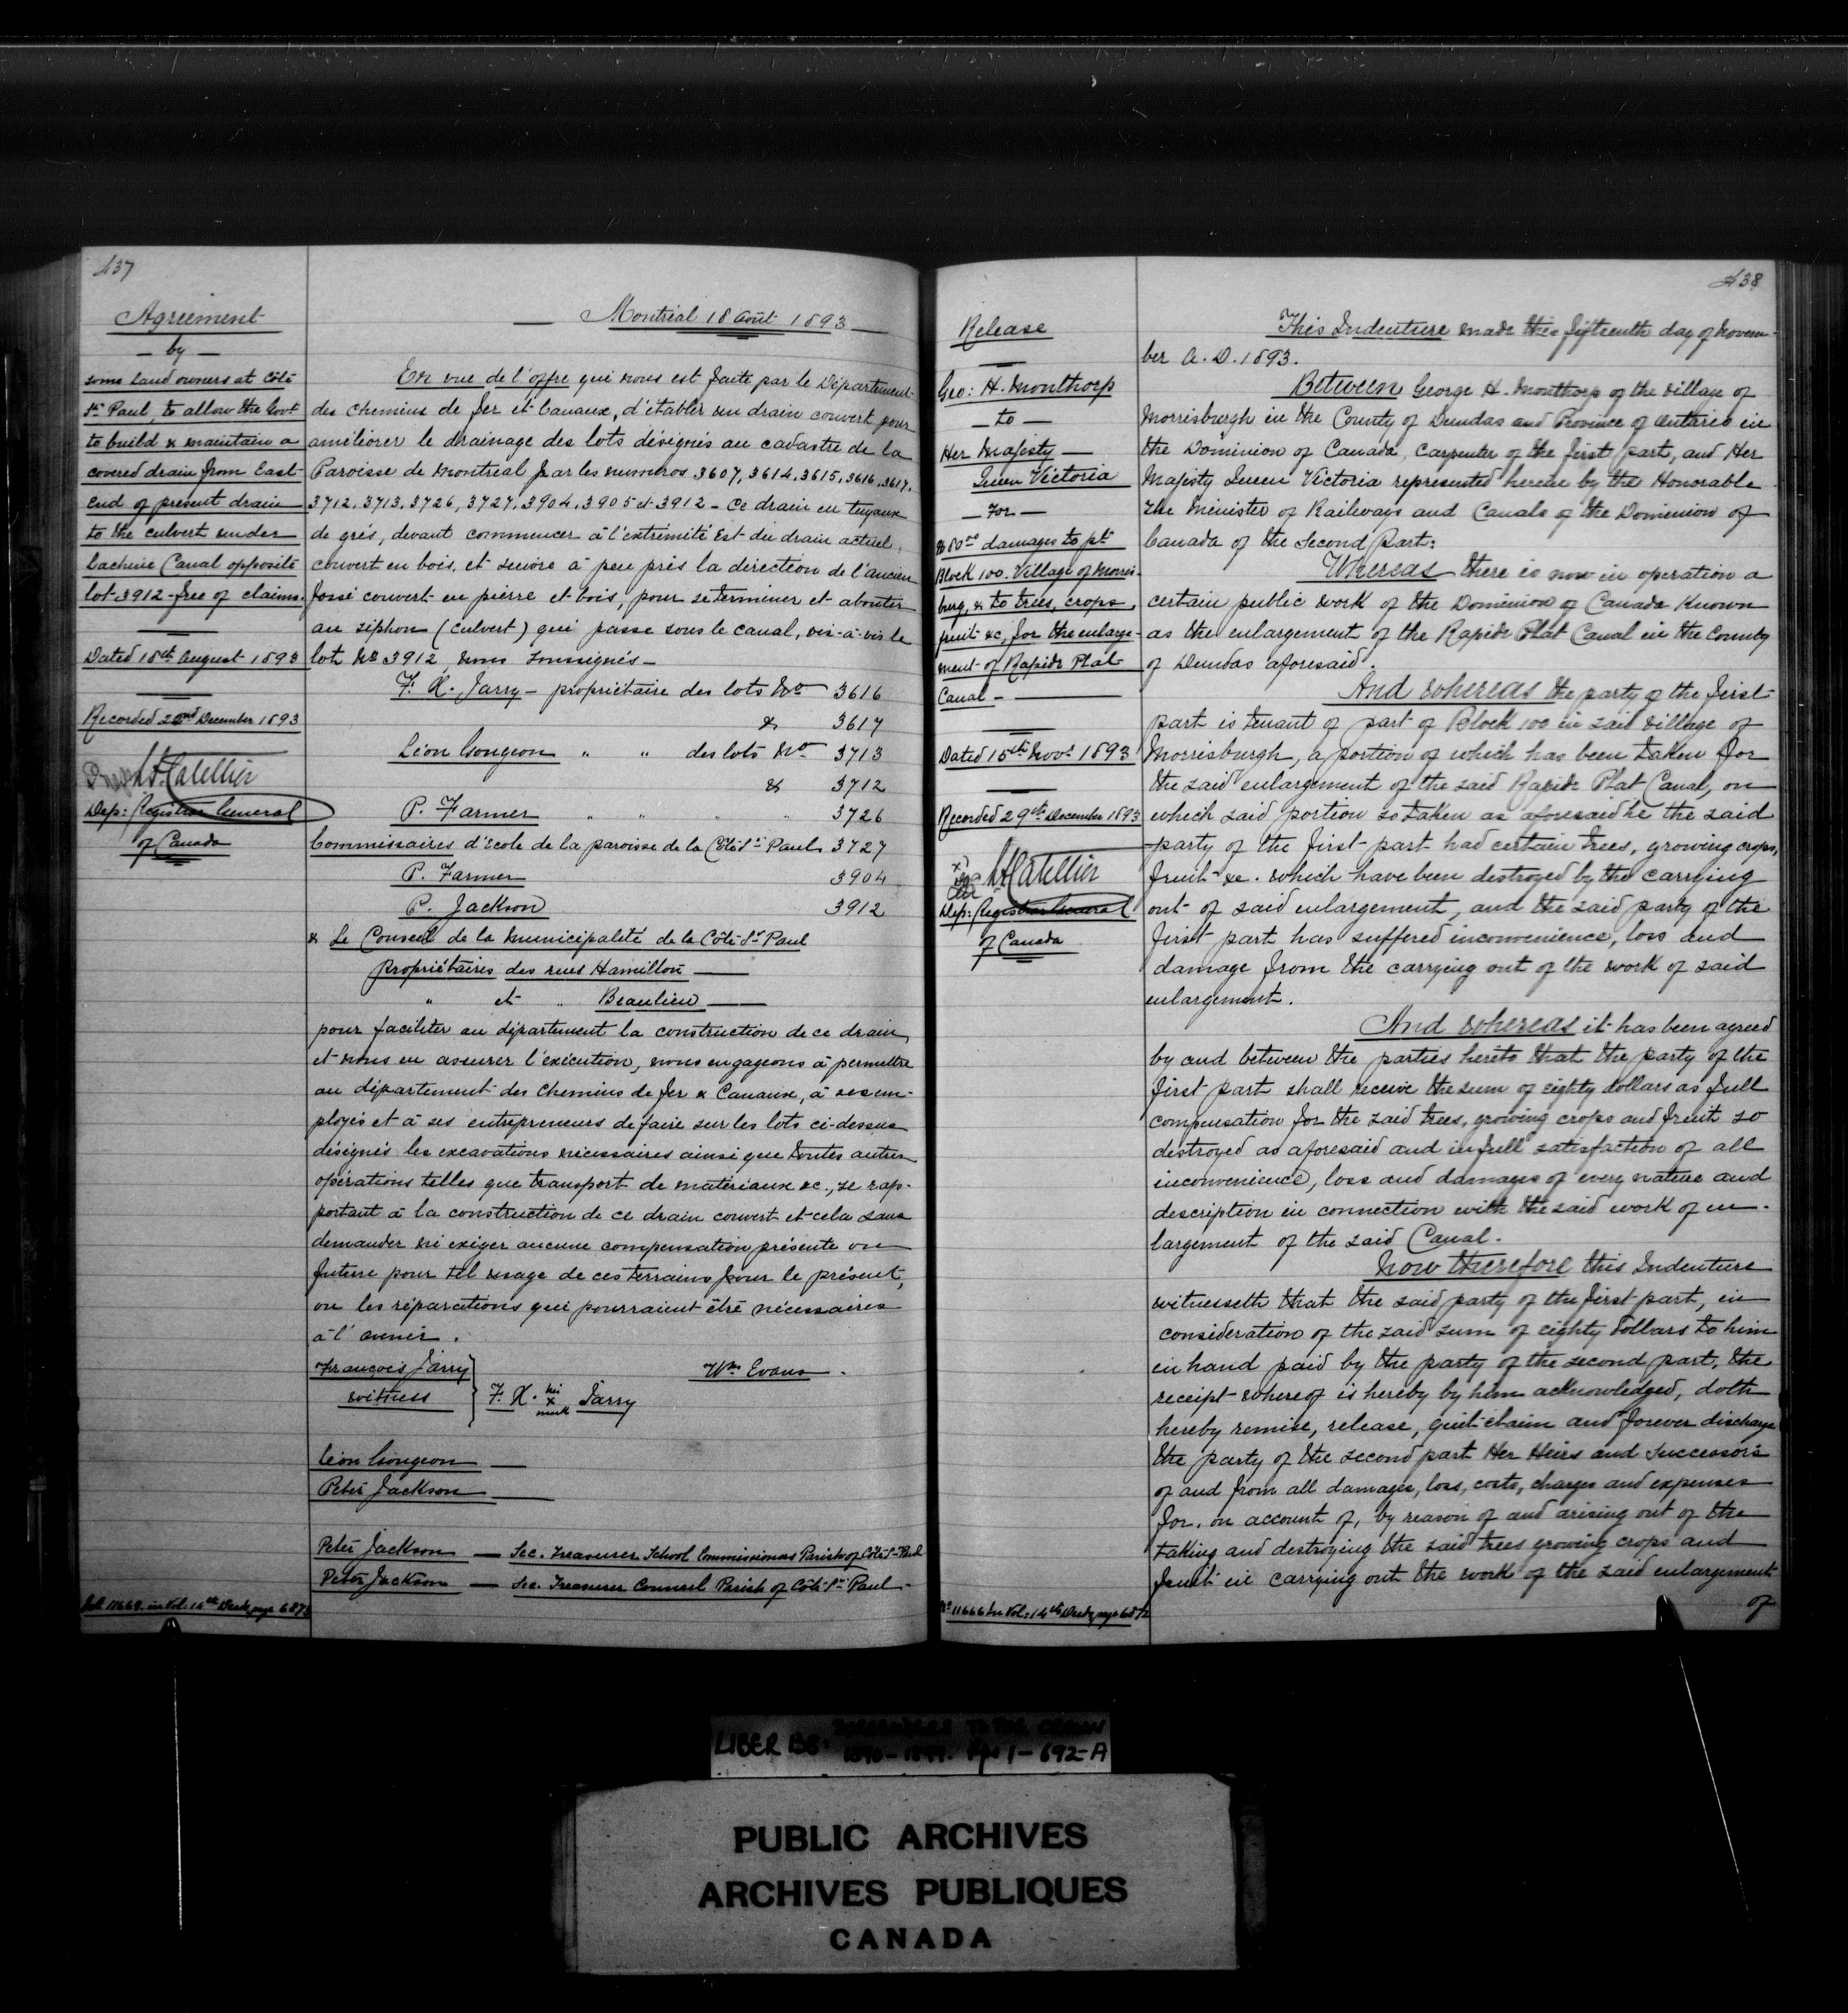 437
Agreement
— by —
some land owners at Côté
St. Paul, to allow the Govt
to build & maintain a
covered drain from East
end of present drain
to the culvert under
Lachine Canal opposite
lot 3912 - free of claims.
Dated 18th August 1893
Recorded 22nd December 1893
L A Catellier
Dep: Registrar General
of Canada
Montréal 18 Août 1893
En vue de l'offre qui nous est faite par le Département
des chemins de fer et Canaux, d'établir un drain couvert pour
améliorer le drainage des lots désignés au cadastre de la
Paroisse de Montréal par les numéros 3607, 3614, 3615, 3616, 3617,
3712, 3713, 3726, 3727, 3904, 3905 et 3912 - Ce drain en tuyaux
de grés, devant commencer à l'extrémité Est du drain actuel,
couvert en bois, et suivre à peu près la direction de l'ancien
fossé couvert en pierre et bois, pour se terminer et abouter
au siphon (culvert) qui passe sous le canal, vis-à-vis le
lot No 3912, nous soussignés —
F. X. Jarry — propriétaire des lots No 3616
& 3617
Léon Gougeon " " des lots No 3713
& 3712
P. Farmer " " " " 3726
Commissaires d'école de la paroisse de la Côté St. Paul 3727
P. Farmer 3904
P. Jackson 3912
& Le Conseil de la Municipalité de la Côté St. Paul
Propriétaires des rues Hamilton —
" et " Beaulieu —
pour faciliter au département la construction de ce drain,
et nous en assurer l'exécution, nous engageons à permettre
au département des Chemins de fer & Canaux, à ses em-
ployés et à ses entrepreneurs de faire sur les lots ci-dessus
désignés les excavations nécessaires ainsi que toutes autres
opérations telles que transport de matériaux &c., se rap-
portant à la construction de ce drain couvert et cela sans
demander ni exiger aucune compensation présente ou
future pour tel usage de ces terrains pour le présent,
ou les réparations qui pourraient être nécessaires
à l'avenir.
François Jarry
witness
F. X. his x mark Jarry
Wm Evans.
Léon Gougeon —
Peter Jackson —
Peter Jackson — Sec. Treasurer School Commissioners Parish of Côté St. Paul
Peter Jackson — Sec. Treasurer Council Parish of Côté St. Paul —
11669. in Vol: 14th Deeds, page 687
438
Release
Geo: H. Monthorp
— to —
Her Majesty —
Queen Victoria
— For —
$80.00 damages to pt
Block 100. Village of Morris-
burg, & to trees, crops,
fruit &c, for the enlarge-
ment of Rapide Plat
Canal —
Dated 15th Novr 1893
Recorded 29th December 1893
L A Catellier
Dep: Registrar General
of Canada
This Indenture made this fifteenth day of Novem-
ber A.D. 1893.
Between George H. Monthorp of the village of
Morrisburgh in the County of Dundas and Province of Ontario in
the Dominion of Canada, Carpenter of the first part, and Her
Majesty Queen Victoria represented herein by the Honorable
the Minister of Railways and Canals of the Dominion of
Canada of the Second Part:
Whereas there is now in operation a
certain public work of the Dominion of Canada known
as the enlargement of the Rapide Plat Canal in the County
of Dundas aforesaid.
And whereas the party of the first
part is tenant of part of Block 100 in said village of
Morrisburgh, a portion of which has been taken for
the said enlargement of the said Rapide Plat Canal, on
which said portion so taken as aforesaid he the said
party of the first part had certain trees, growing crops,
fruit &c. which have been destroyed by the carrying
out of said enlargement, and the said party of the
first part has suffered inconvenience, loss and
damage from the carrying out of the work of said
enlargement.
And whereas it has been agreed
by and between the parties hereto that the party of the
first part shall receive the sum of eighty dollars as full
compensation for the said trees, growing crops and fruit so
destroyed as aforesaid and in full satisfaction of all
inconvenience, loss and damages of every nature and
description in connection with the said work of en-
largement of the said Canal.
Now therefore this Indenture
witnesseth that the said party of the first part, in
consideration of the said sum of eighty dollars to him
in hand paid by the party of the second part, the
receipt whereof is hereby by him acknowledged, doth
hereby remise, release, quit-claim and forever discharge
the party of the second part Her Heirs and Successors
of and from all damages, loss, costs, charges and expenses
for, on account of, by reason of and arising out of the
taking and destroying the said trees growing crops and
fruit in carrying out the work of the said enlargement
of
No 11666 in Vol: 14th Deeds, page 687
LIBER BB.
1890-1899. Pgs 1-692-A
PUBLIC ARCHIVES
ARCHIVES PUBLIQUES
CANADA